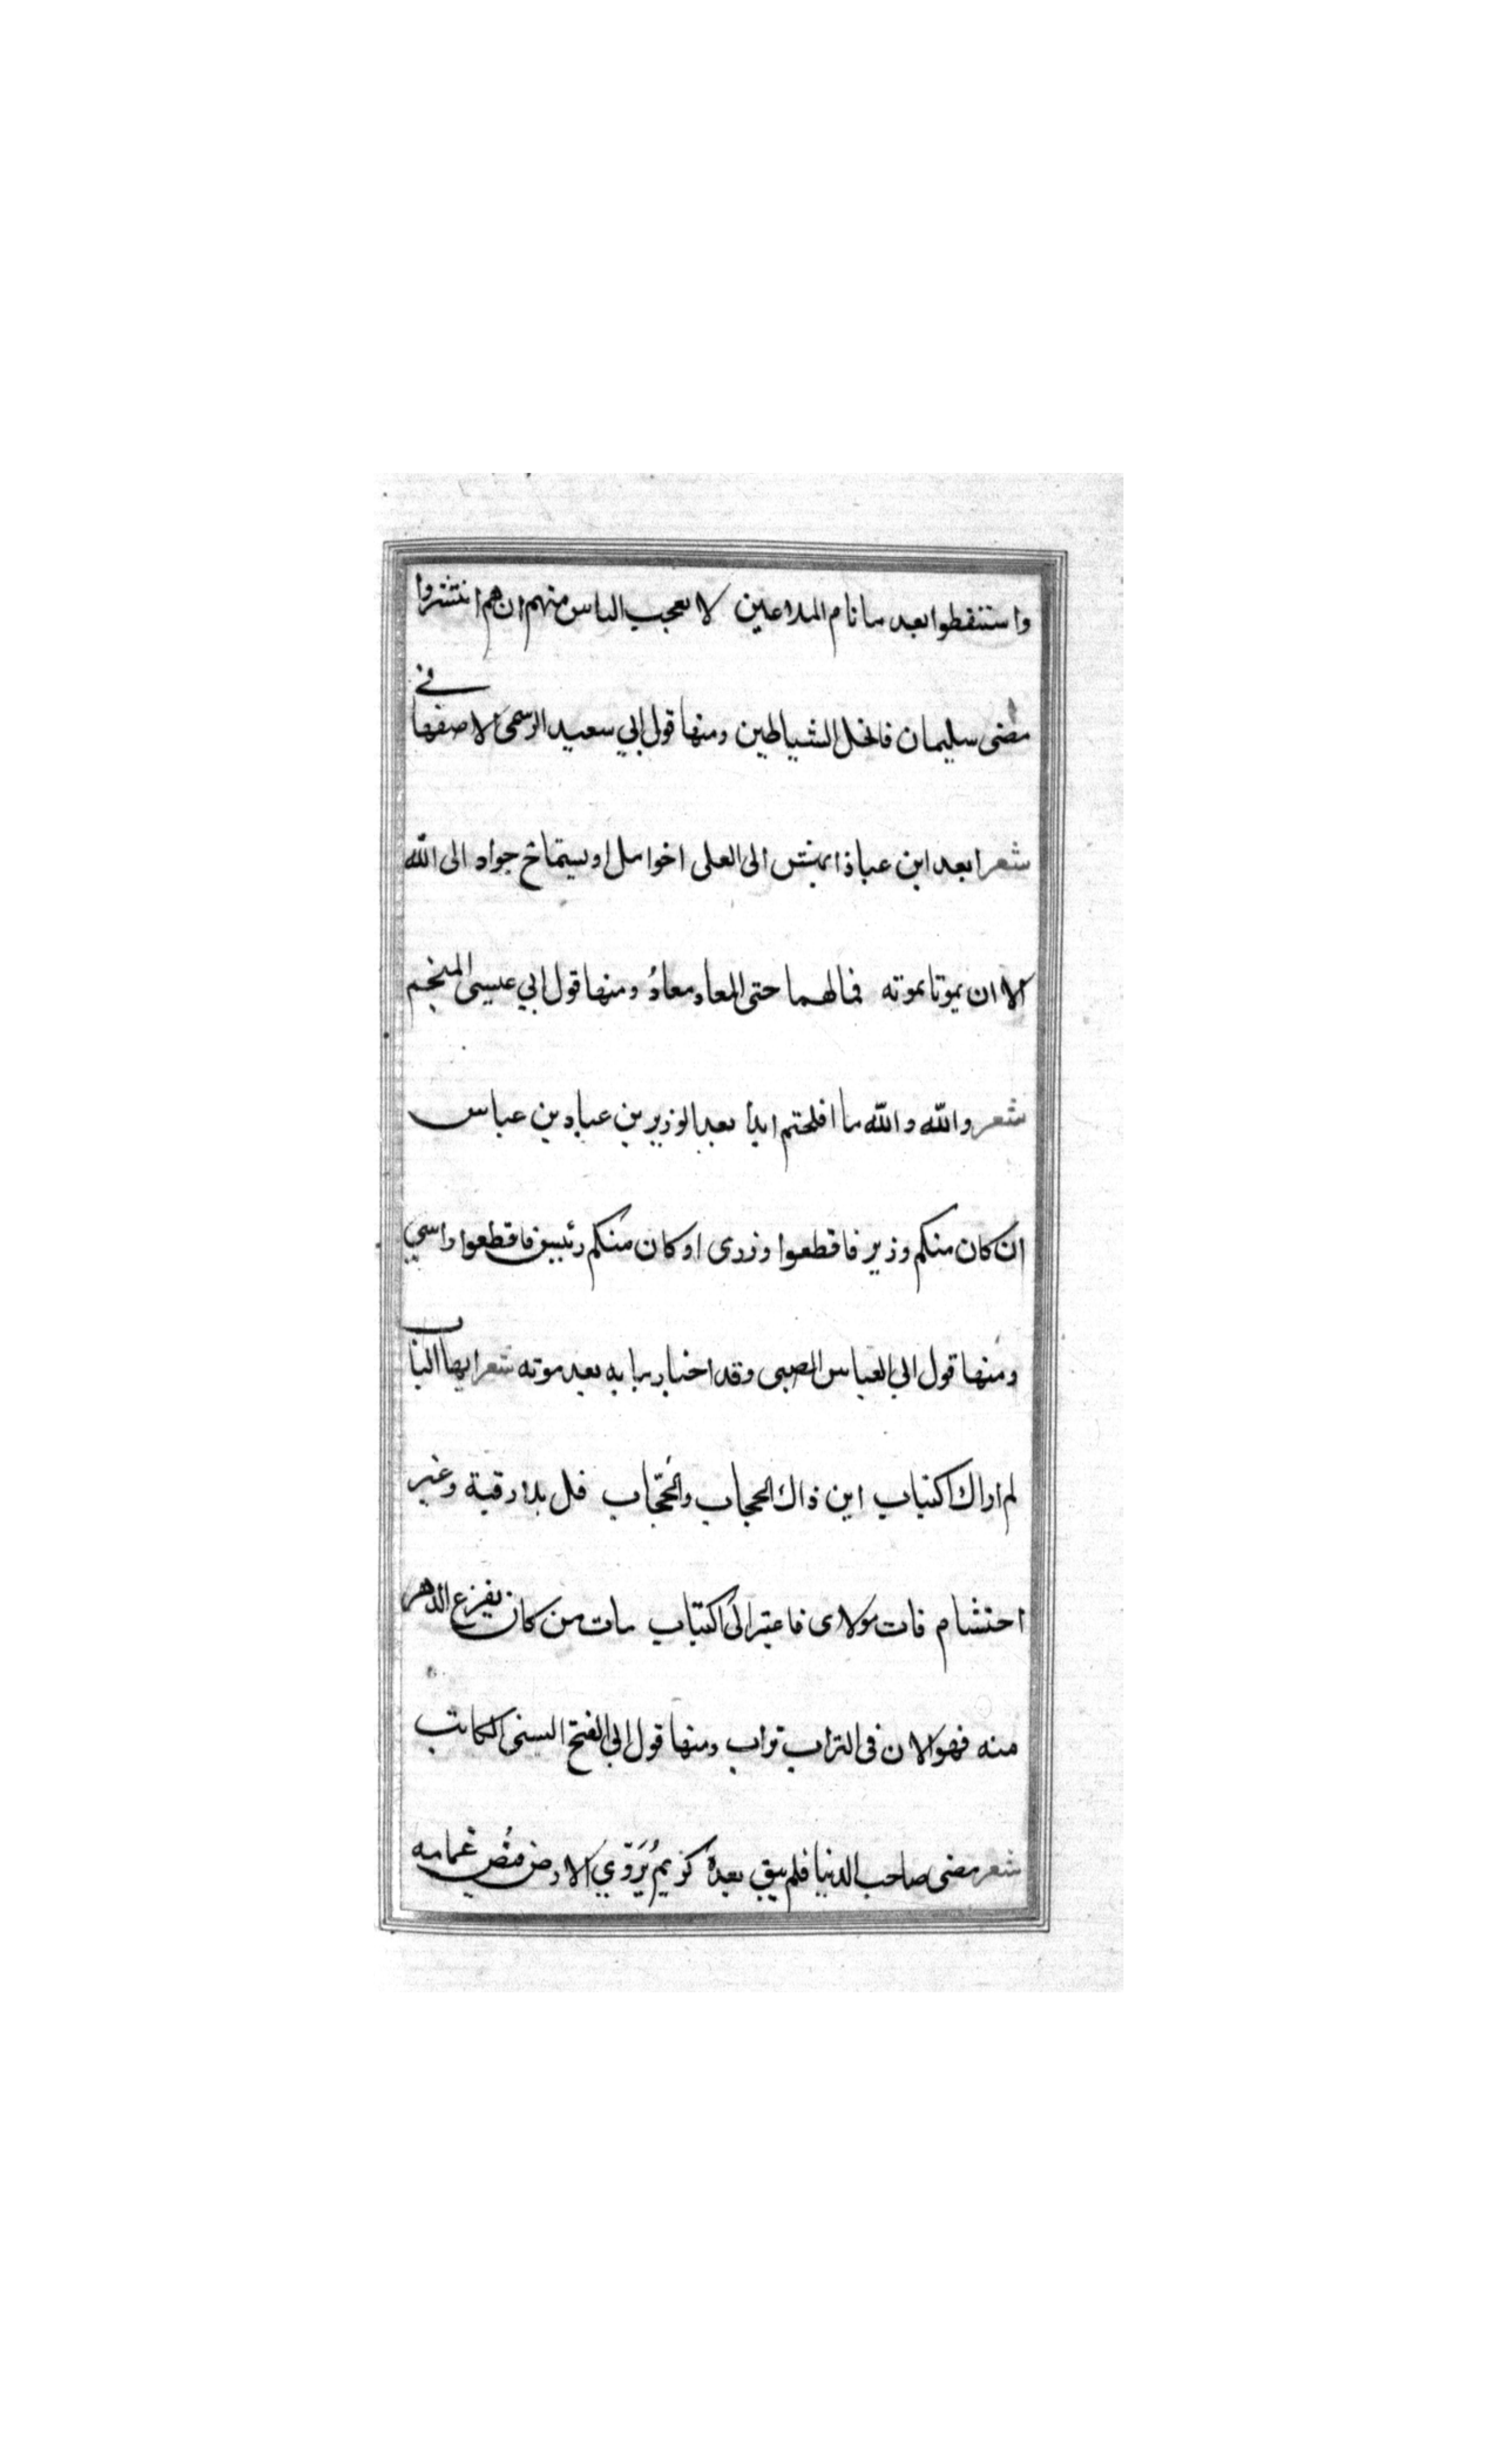 واستنقطوا بعد ما نام الملاعين لا يعجب الناس منهم ان هم انتشروا
مضى سليمان فانحل الشياطين ومنها قول ابي سعيد الرسمى الاصفهانى
شعر ابعد ابن عباذ يهش الى العلى اخوامل اويستماخ جواد الى الله
الا ان يموتا بموته فمالهما حتى المعاد معادُ ومنها قول ابي عيسى المنجم
شعر والله والله ما افلحتم ابدا بعد الوزير بن عباد بن عباس
ان كان منكم وزير فاقطعوا وزرى او كان منكم رئيس فاقطعوا راسي
ومنها قول ابي العباس الصبى وقد اجتاز ببابه بعد موته شعر ايها الباب
لم اراك اكتياب اين ذاك الحجاب والحُجّاب قل بلا رقبة وغير
احتشام فات مولاى فاعترانى اكتياب مات من كان يفزع الدهر
منه فهو الان فى التراب تراب ومنها قول ابي الفتح البستى الكاتب
شعر مضى صاحب الدنيا فلم يبق بعدهُ كريمُ يُرَوّي الارض فيض غمامه